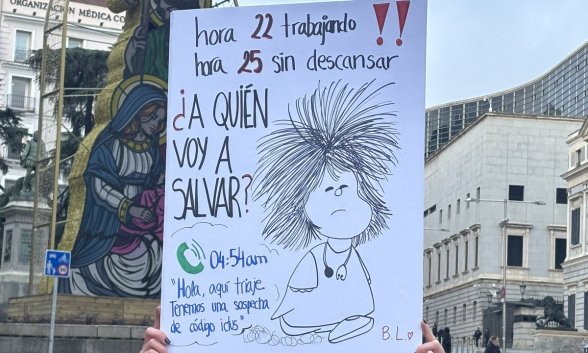 ORGANIZACIÓN MÉDICA CO
hora 22 trabajando !!
hora 25 sin descansar
¿A QUIÉN
VOY A
SALVAR?
04:54am
"Hola, aquí triaje.
Tenemos una sospecha
de código ictus"
B.L.